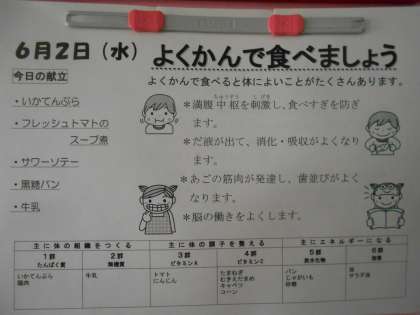 6月2日（水）
よくかんで食べましょう
今日の献立
よくかんで食べると体によいことがたくさんあります。
・いかてんぷら
・フレッシュトマトの
スープ煮
・サワーソテー
・黒糖パン
・牛乳
＊満腹中枢を刺激し、食べすぎを防ぎ
ます。
＊だ液が出て、消化・吸収がよくなり
ます。
＊あごの筋肉が発達し、歯並びがよく
なります。
＊脳の働きをよくします。
主に体の組織をつくる
主に体の調子を整える
主にエネルギーになる
1群
たんぱく質
2群
無機質
3群
ビタミンA
4群
ビタミンC
5群
炭水化物
6群
脂肪
いかてんぷら
鶏肉
牛乳
トマト
にんじん
たまねぎ
むきえだまめ
キャベツ
コーン
パン
じゃがいも
砂糖
油
サラダ油